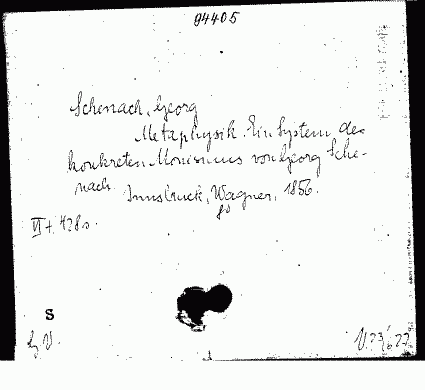 94405
Schenach, Georg
Metaphysik. Ein System des
konkreten Monismus von Georg Sche-
nach. Innsbruck, Wagner, 1856.
8°
VI + 428 s.
S